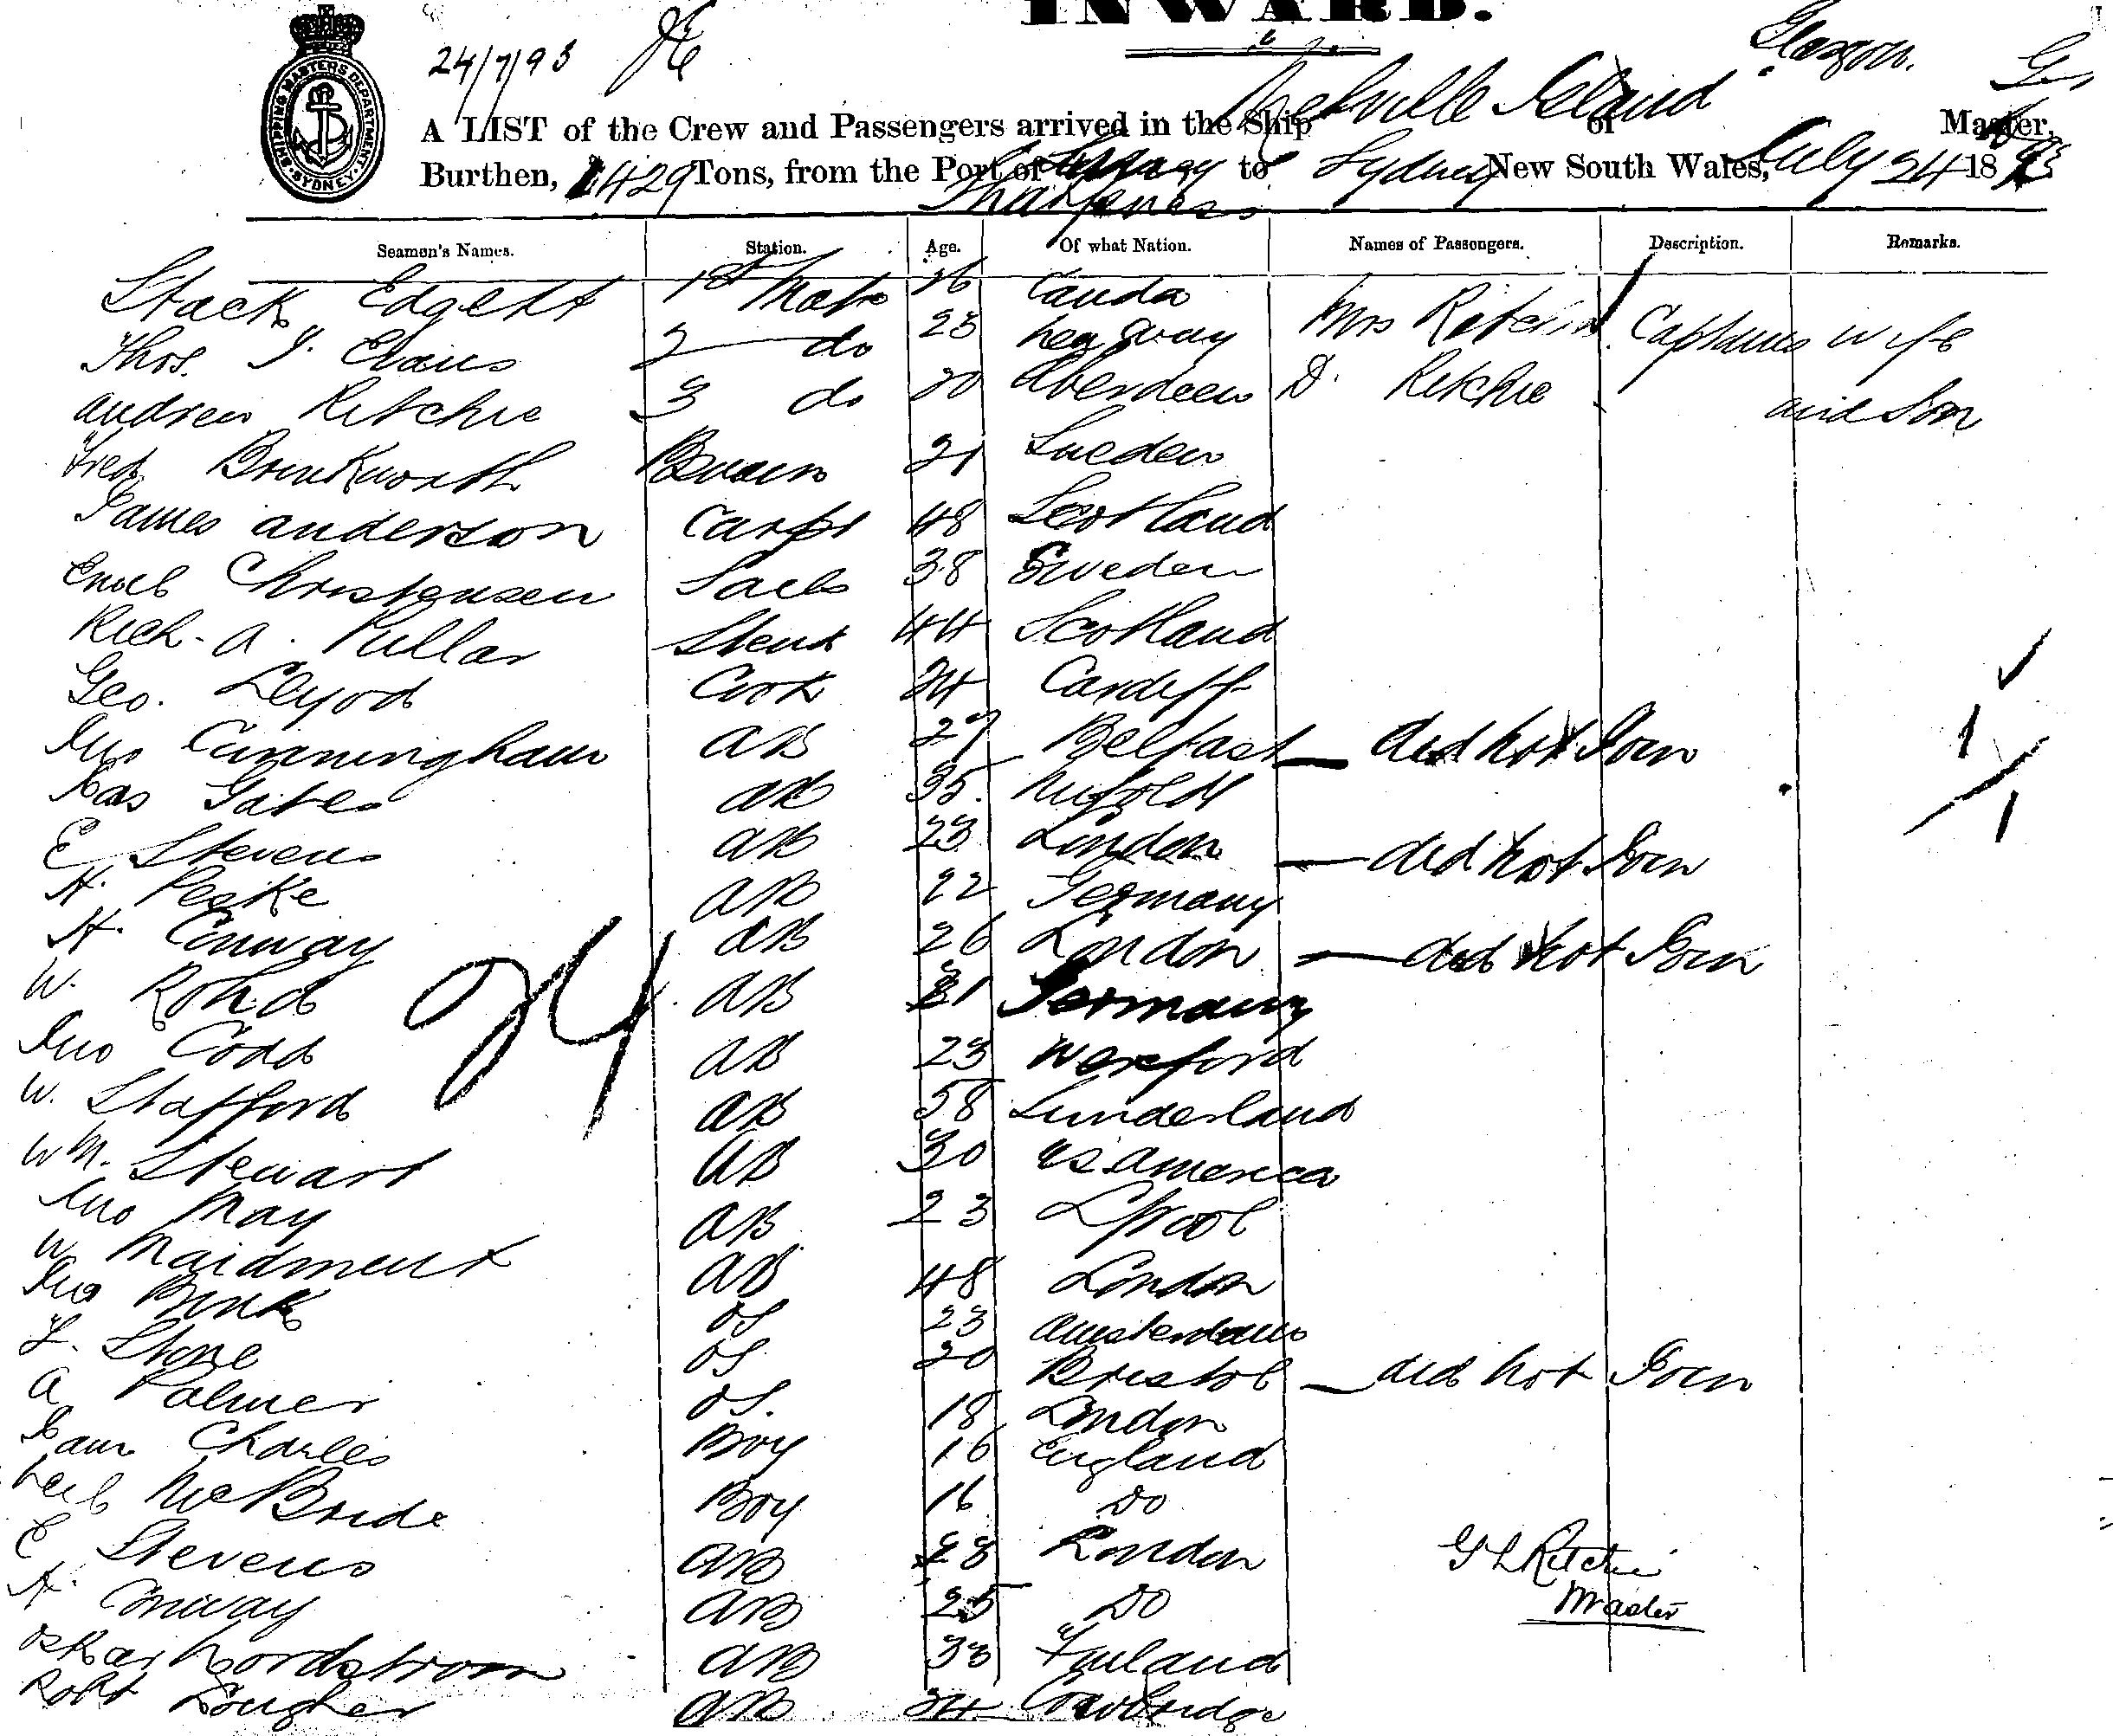 INWARD.
24/7/93
SHIPPING MASTERS DEPARTMENT SYDNEY
Melville Island Glasgow.
A LIST of the Crew and Passengers arrived in the Ship of Master,
Burthen, 1429 Tons, from the Port of to Sydney New South Wales, July 24 1893
Sharpness
Seamen's Names. Station. Age. Of what Nation. Names of Passengers. Description. Remarks.
Stack Edgett 1st Mate 26 Canda Mrs Ritchie Captains wife
Thos. J. Evans 2 do 23 D. Ritchie and Son
Andrew Ritchie 3 do 20 Aberdeen
Fred Brinkworth 21 Sweden
James Anderson Carpt 48 Scotland
Christensen Sails 38 Sweden
Rich. A. Pullar Steud 44 Scotland
Geo. Llyod Cook 24 Cardiff
Jno Cunningham AB 27 Belfast — did not Join
Jas Gates AB 35
E Stevens AB 23 London — did not Join
H. Peske AB 22 Germany
H. Conway AB 26 London — did not Join
W. Rohd AB 31 Germany
Jno Codd AB 23 Wexford
W. Stafford AB 58 Sunderland
Wm. Stewart AB 30 US America
Jno May AB 23 Lpool
W Maidment AB 48 London
Jno Bink OS 23 Amsterdam
F. Stone OS 20 Bristol — did not Join
A Palmer OS. 18 London
Sam Charles Boy 16 England
Neil McBride Boy 16 Do
E Stevens AB 23 London
H. Conway AB 25 Do
Oskar Nordstrom AB 33 Finland
Robt Lougher AB 24 Cowbridge
G L Ritchie
Master
24